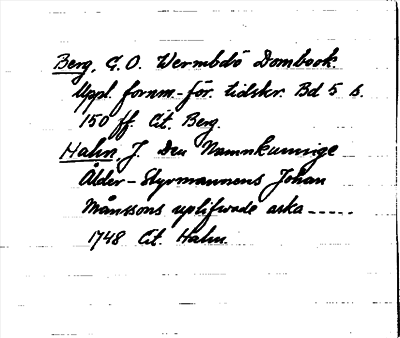 Berg, G.O. Wermbdö Dombook.
Uppl. fornm.-för. tidskr. Bd 5 s.
150 ff. Cit. Berg.
Hahn, J. Den Namnkunnige
Ålder-Styrmannens Johan
Månssons uplifwade aska-----
1748 Cit. Hahn.